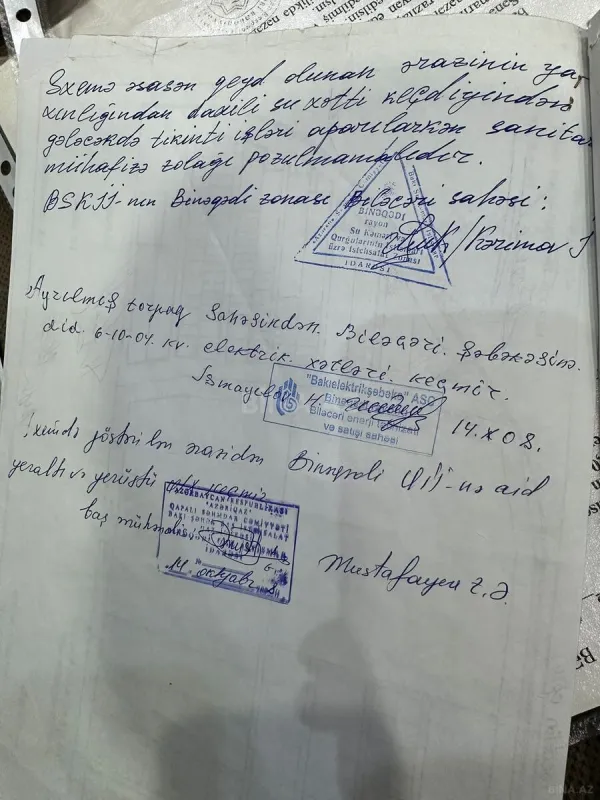 Sxemə əsasən qeyd olunan ərazinin ya-
xınlığından daxili su xətti keçdiyindən
gələcəkdə tikinti işləri aparılarkən sanitar
mühafizə zolağı pozulmamalıdır.
ƏSKİİ-nın Binəqədi zonası Biləcəri sahəsi:
BİNƏQƏDİ
rayon
Su Kəməri və
Qurğularının İstismarı
üzrə İstehsalat Sahəsi
İDARƏSİ
/Kərimov
Ayrılmış torpaq sahəsindən Biləcəri şəbəkəsinə
aid. 6-10-04. kv. elektrik xətləri keçmir.
"Bakıelektrikşəbəkə" ASC
Biləcəri enerji təminatı
və satışı sahəsi
İsmayılov H. 14.X 08.
Sxemdə göstərilən ərazidən Binəqədi -nə aid
yeraltı və yerüstü keçmir
AZƏRBAYCAN RESPUBLİKASI
"AZƏRİQAZ"
QAPALI SƏHMDAR CƏMİYYƏTİ
İDARƏSİ
baş mühəndisi
14 oktyabr
Mustafayev Z.Ə.
BINA.AZ